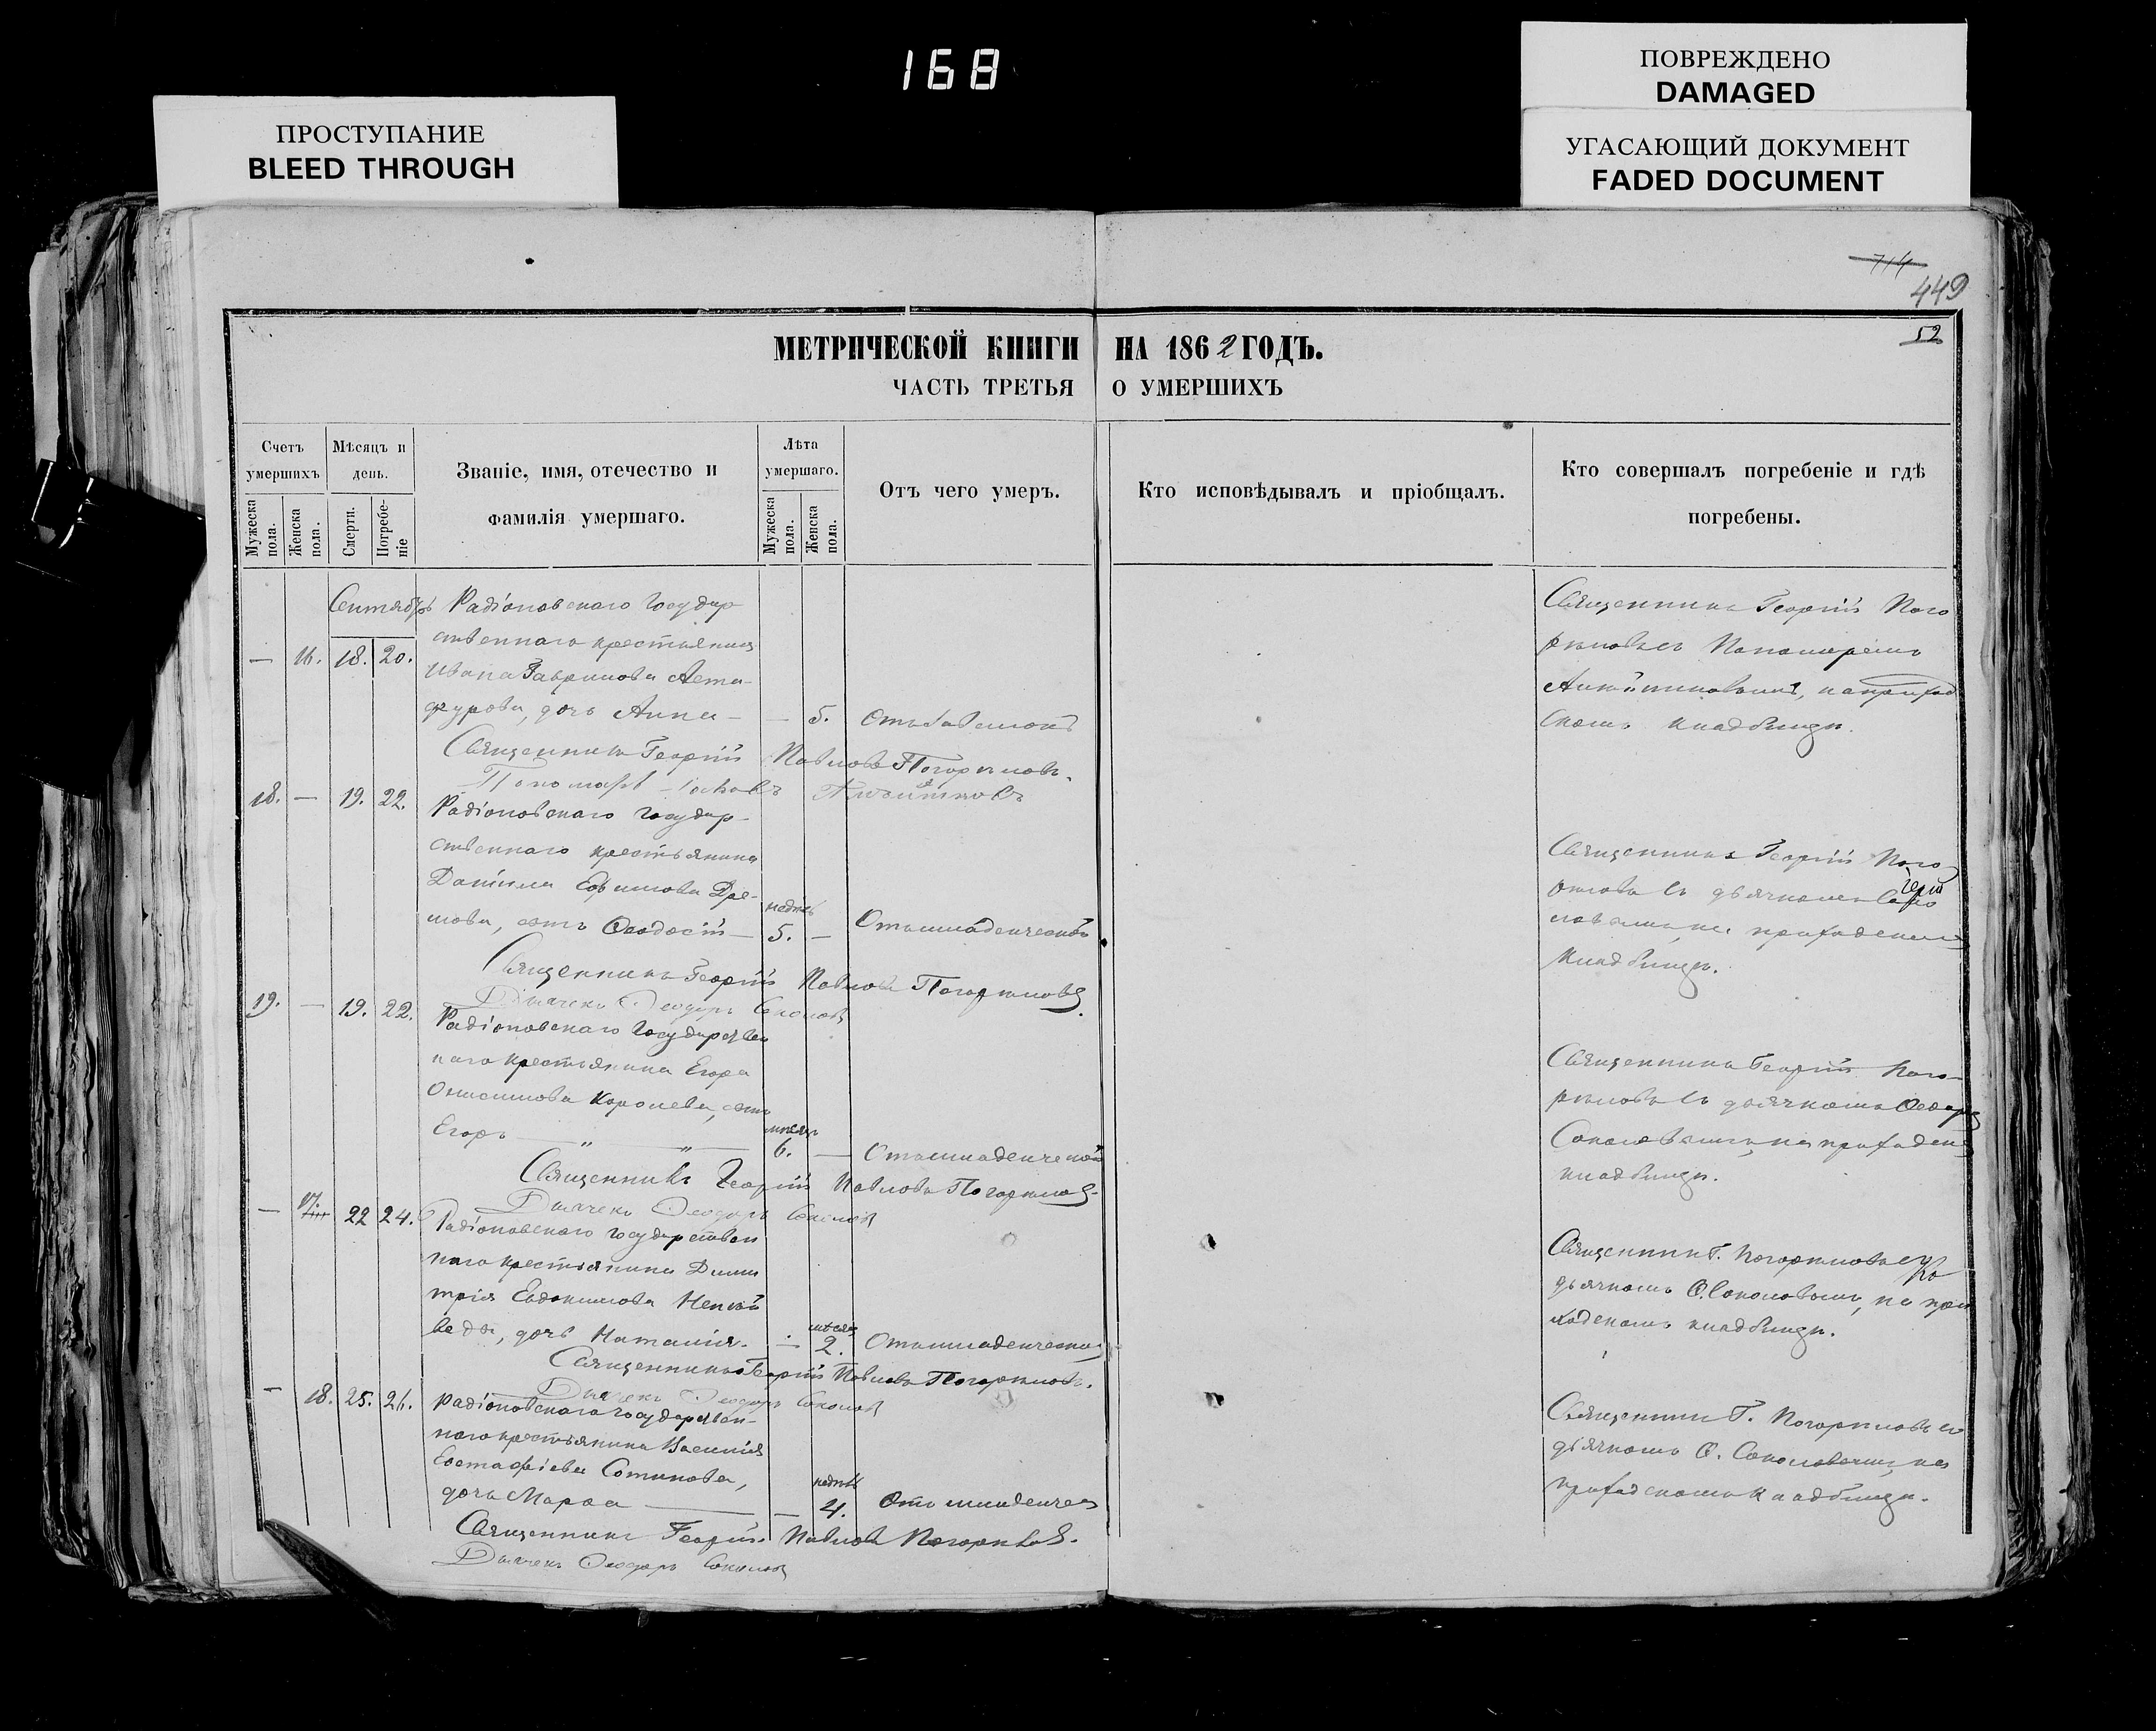 168
ПРОСТУПАНИЕ
BLEED THROUGH
ПОВРЕЖДЕНО
DAMAGED
УГАСАЮЩИЙ ДОКУМЕНТ
FADED DOCUMENT
714
449
52
МЕТРИЧЕСКОЙ КНИГИ НА 1862 ГОДЪ.
ЧАСТЬ ТРЕТЬЯ О УМЕРШИХЪ
Счетъ умершихъ
Мужеска пола.
Женска пола.
Мѣсяцъ и день.
Смерти.
Погребе-
ніе
Званіе, имя, отечество и
фамилія умершаго.
Лѣта умершаго.
Мужеска пола.
Женска пола.
Отъ чего умеръ.
Кто исповѣдывалъ и пріобщалъ.
Кто совершалъ погребеніе и гдѣ
погребены.
Сентябрь
— 16. 18. 20.
Радіоновскаго государ-
ственнаго крестьянина
Ивана Гаврилова
дочь Анна — — 5.
Священникъ Георгій Пого
рѣловъ съ Пономаремъ
кладбищѣ.
Священникъ Георгій Павловъ Погорѣловъ.
Пономарь
18. — 19. 22.
Радіоновскаго государ-
ственнаго крестьянина
Даніила Ефимова Дре-
мова, сынъ Ѳеодосій — недѣль 5. —
Отъ младенческой
Священникъ Георгій Пого
рѣловъ съ дьячкомъ
на приходскомъ
кладбищѣ.
Священникъ Георгій Павловъ Погорѣловъ.
Дьячекъ Ѳеодоръ Соколовъ
19. — 19. 22.
Радіоновскаго государствен
наго крестьянина Егора
Онисимова Королева, сынъ
Егоръ — „ — „ — мѣсяц 6. — Отъ младенческой
Священникъ Георгій Пого-
рѣловъ съ дьячкомъ Ѳеодор
Соколовымъ, на приходск
кладбищѣ.
Священникъ Георгій Павловъ Погорѣловъ.
Дьячекъ Ѳеодоръ Соколовъ
— 17 22 24.
Радіоновскаго государствен
наго крестьянина Дими
трія Евдокимова
дочь Наталія. — мѣсяц 2. Отъ младенческой
Священник Г. Погорѣловъ съ
дьячкомъ Ѳ. Соколовымъ, на при
ходскомъ кладбищѣ.
Священникъ Георгій Павловъ Погорѣловъ.
Дьячекъ Ѳеодоръ Соколовъ
— 18. 25. 26.
Радіоновскаго государствен-
наго крестьянина Василія
Евстафіева Сотникова,
дочь Марѳа — — недѣль 4. Отъ младенчес
Священник Г. Погорѣловъ съ
дьячкомъ Ѳ. Соколовымъ, на
приходскомъ кладбищѣ.
Священникъ Георгій Павловъ Погорѣловъ.
Дьячекъ Ѳеодоръ Соколовъ